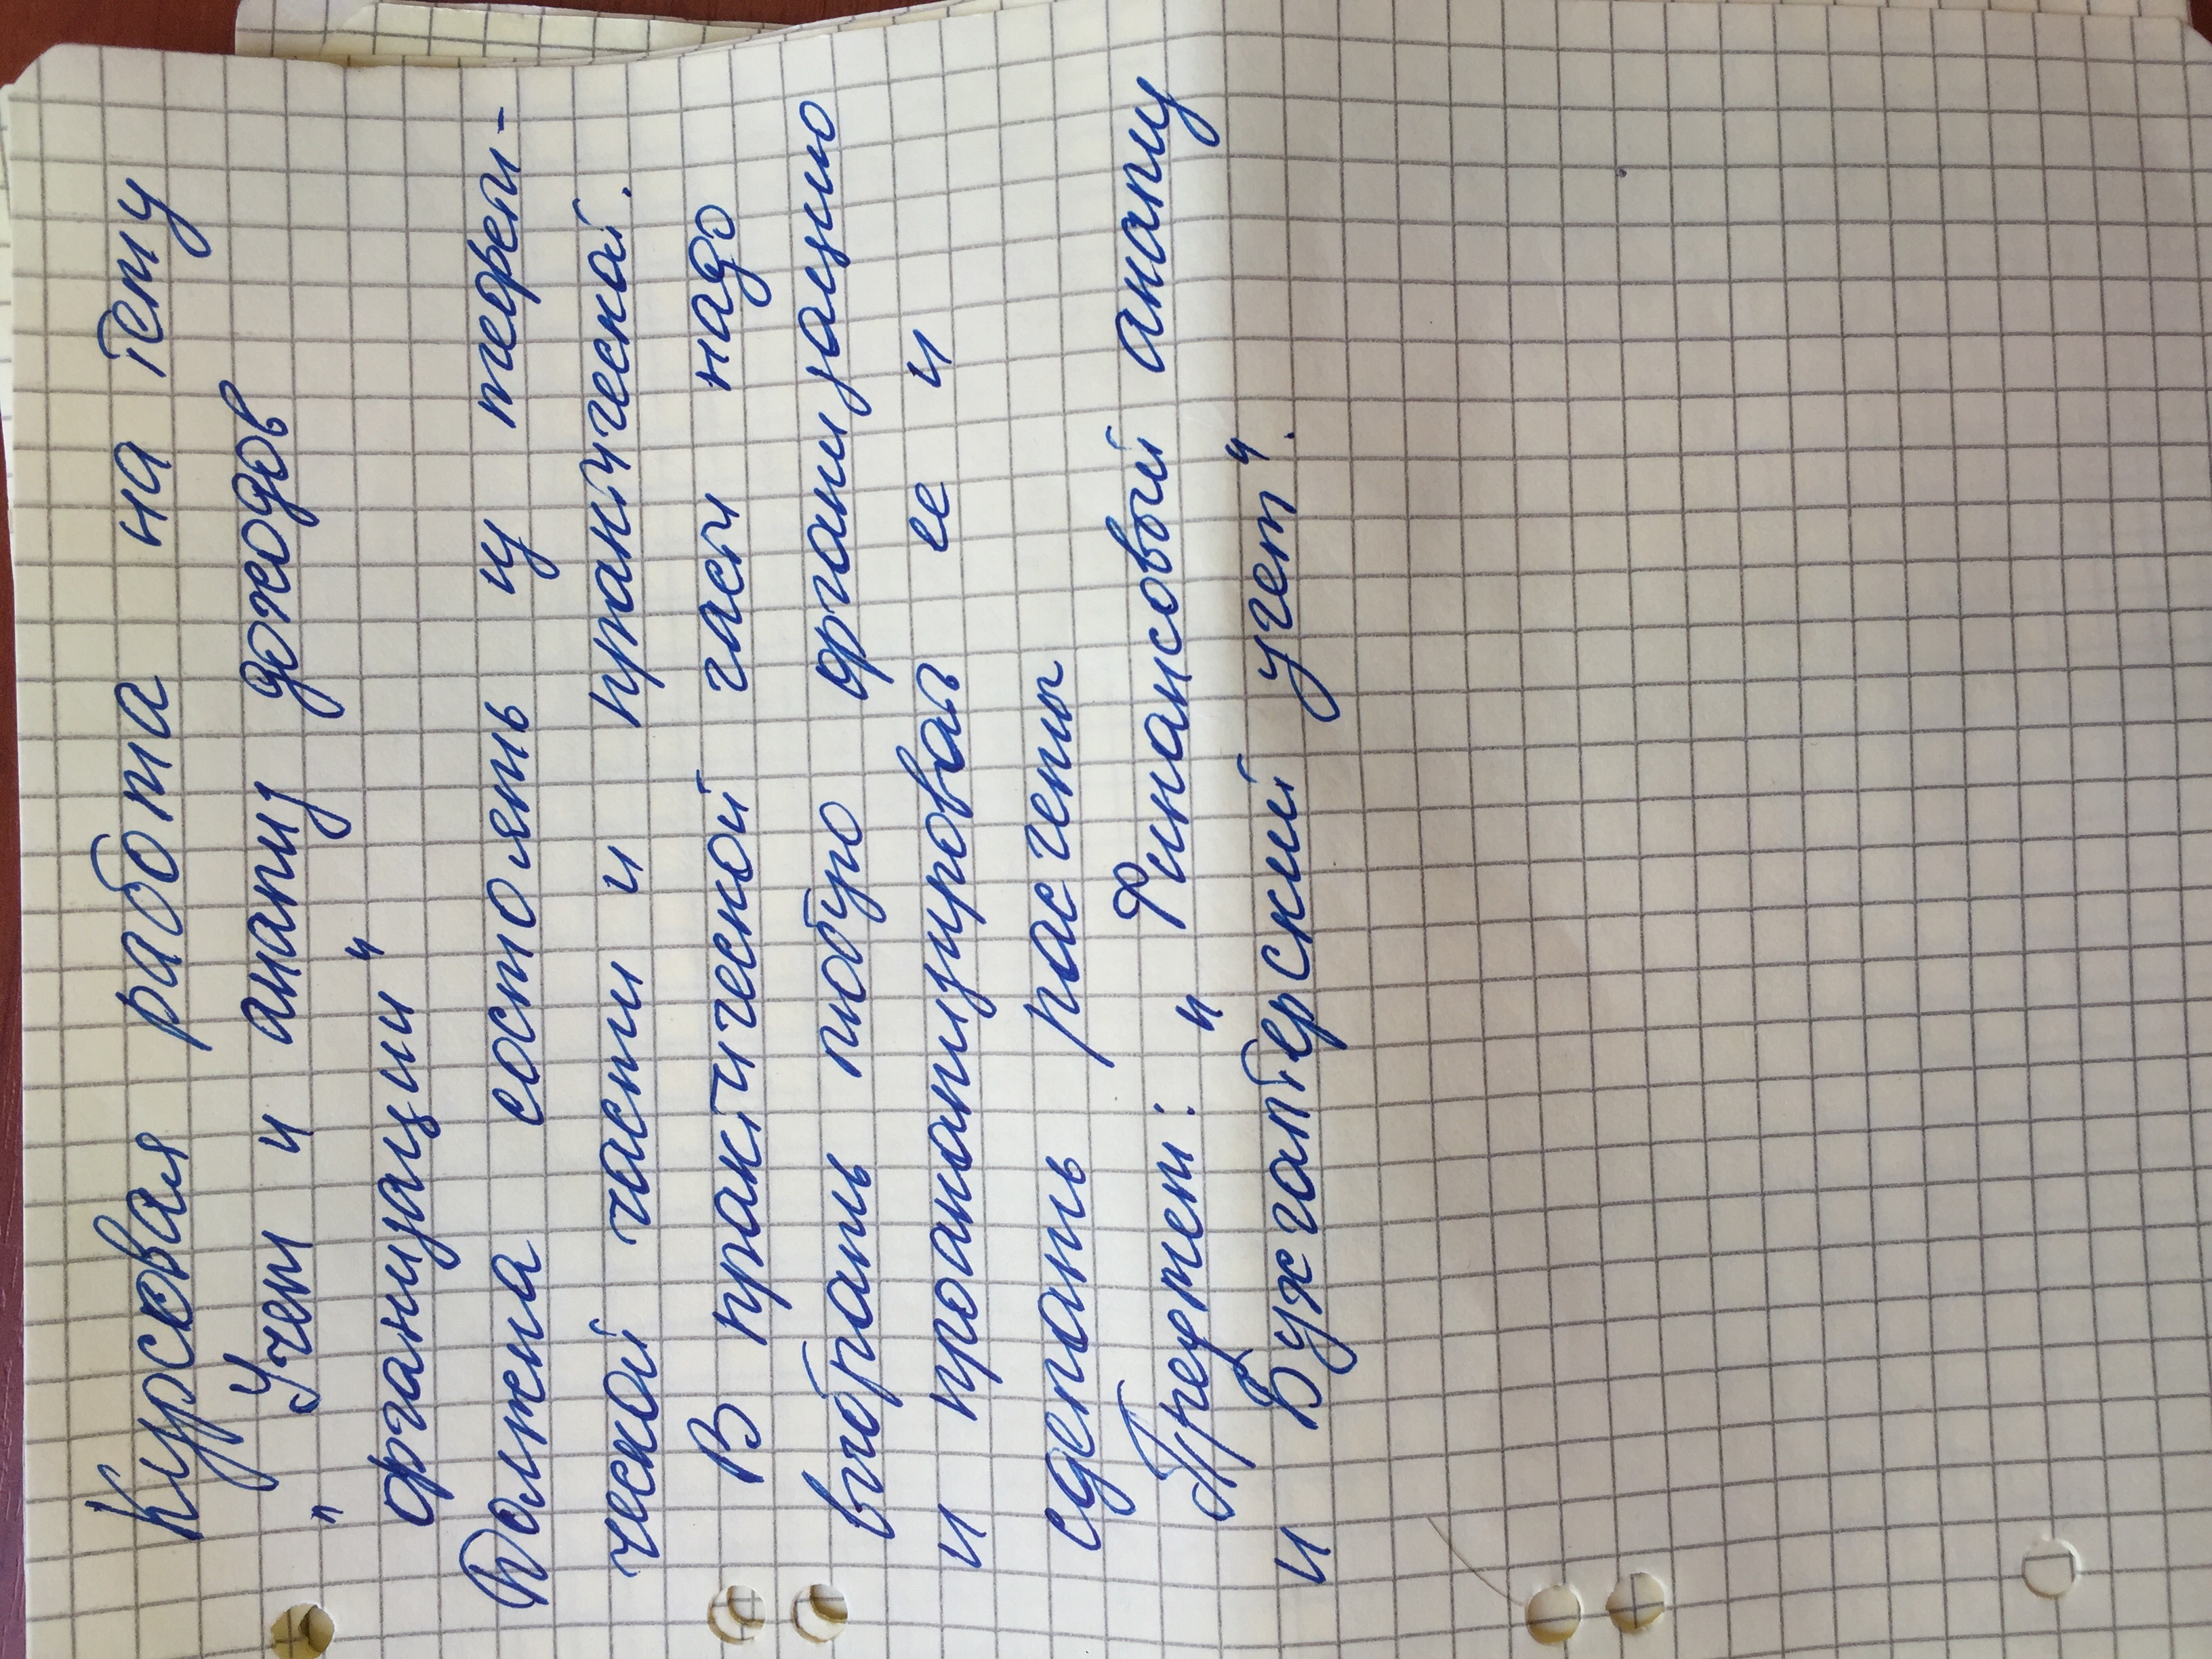 Курсовая работа на тему
" Учет и анализ доходов
организации "
Должна состоять из теорети-
ческой части и практической.
В практической части надо
выбрать любую организацию
и проанализировать ее и
сделать расчеты
Предмет: " Финансовый анализ
и Бухгалтерский учет ".